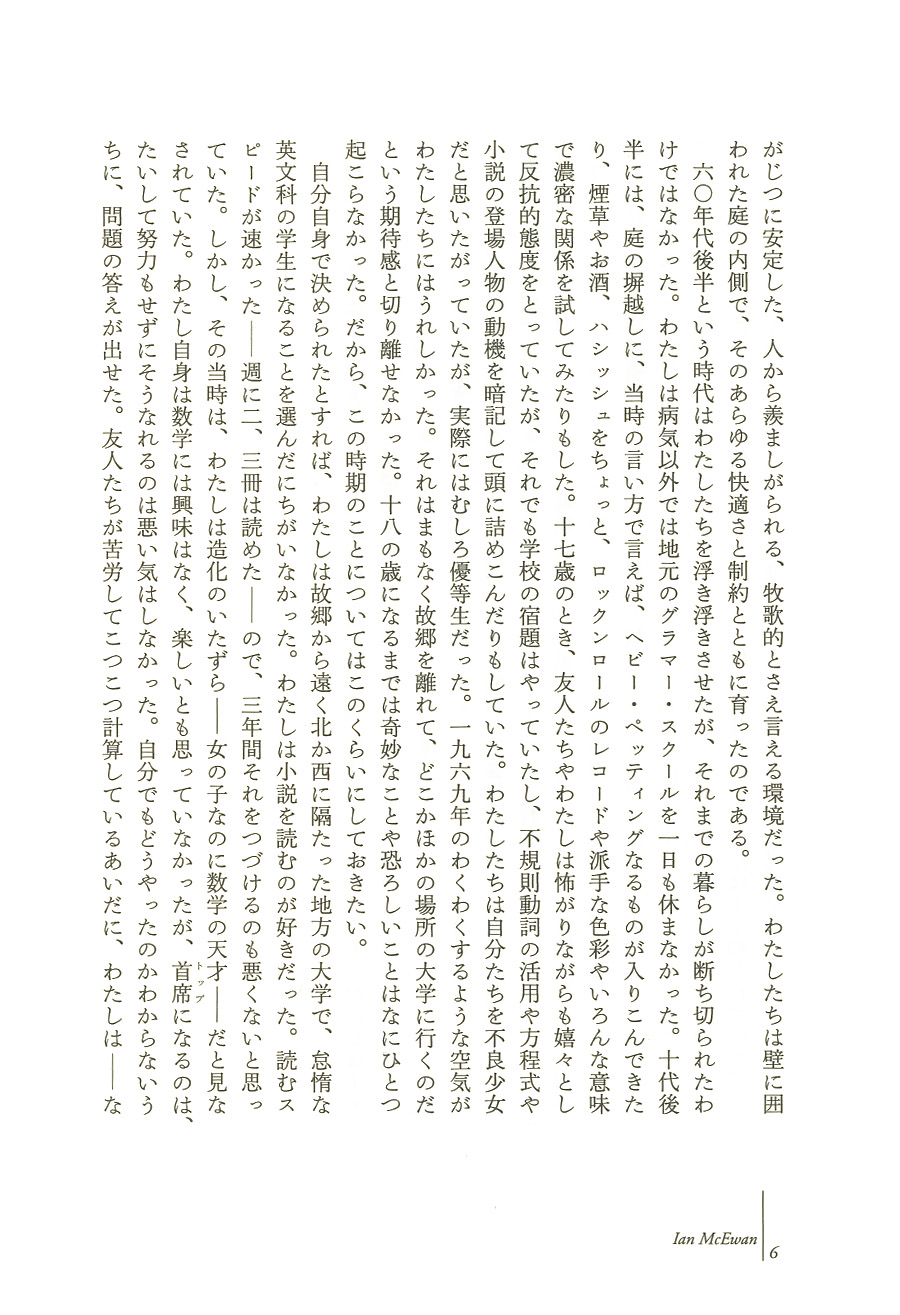 がじつに安定した、人から羨ましがられる、牧歌的とさえ言える環境だった。わたしたちは壁に囲
われた庭の内側で、そのあらゆる快適さと制約とともに育ったのである。
六〇年代後半という時代はわたしたちを浮き浮きさせたが、それまでの暮らしが断ち切られたわ
けではなかった。わたしは病気以外では地元のグラマー・スクールを一日も休まなかった。十代後
半には、庭の塀越しに、当時の言い方で言えば、ヘビー・ペッティングなるものが入りこんできた
り、煙草やお酒、ハシッシュをちょっと、ロックンロールのレコードや派手な色彩やいろんな意味
で濃密な関係を試してみたりもした。十七歳のとき、友人たちやわたしは怖がりながらも嬉々とし
て反抗的態度をとっていたが、それでも学校の宿題はやっていたし、不規則動詞の活用や方程式や
小説の登場人物の動機を暗記して頭に詰めこんだりもしていた。わたしたちは自分たちを不良少女
だと思いたがっていたが、実際にはむしろ優等生だった。一九六九年のわくわくするような空気が
わたしたちにはうれしかった。それはまもなく故郷を離れて、どこかほかの場所の大学に行くのだ
という期待感と切り離せなかった。十八の歳になるまでは奇妙なことや恐ろしいことはなにひとつ
起こらなかった。だから、この時期のことについてはこのくらいにしておきたい。
自分自身で決められたとすれば、わたしは故郷から遠く北か西に隔たった地方の大学で、怠惰な
英文科の学生になることを選んだにちがいなかった。わたしは小説を読むのが好きだった。読むス
ピードが速かった――週に二、三冊は読めた――ので、三年間それをつづけるのも悪くないと思っ
ていた。しかし、その当時は、わたしは造化のいたずら――女の子なのに数学の天才――だと見な
されていた。わたし自身は数学には興味はなく、楽しいとも思っていなかったが、首席トップになるのは、
たいして努力もせずにそうなれるのは悪い気はしなかった。自分でもどうやったのかわからないう
ちに、問題の答えが出せた。友人たちが苦労してこつこつ計算しているあいだに、わたしは――な
Ian McEwan
6